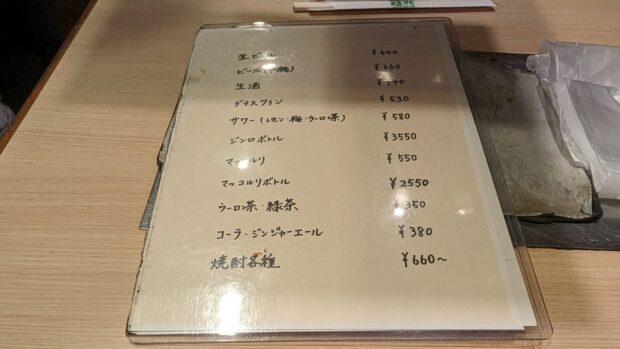 生ビール ¥640
ビール(中瓶) ¥660
生酒
グラスワイン ¥530
サワー(レモン・梅・ウーロン茶) ¥580
ジンロボトル ¥3550
マッコルリ ¥550
マッコルリボトル ¥2550
ウーロン茶・緑茶 ¥350
コーラ・ジンジャーエール ¥380
焼酎各種 ¥660〜